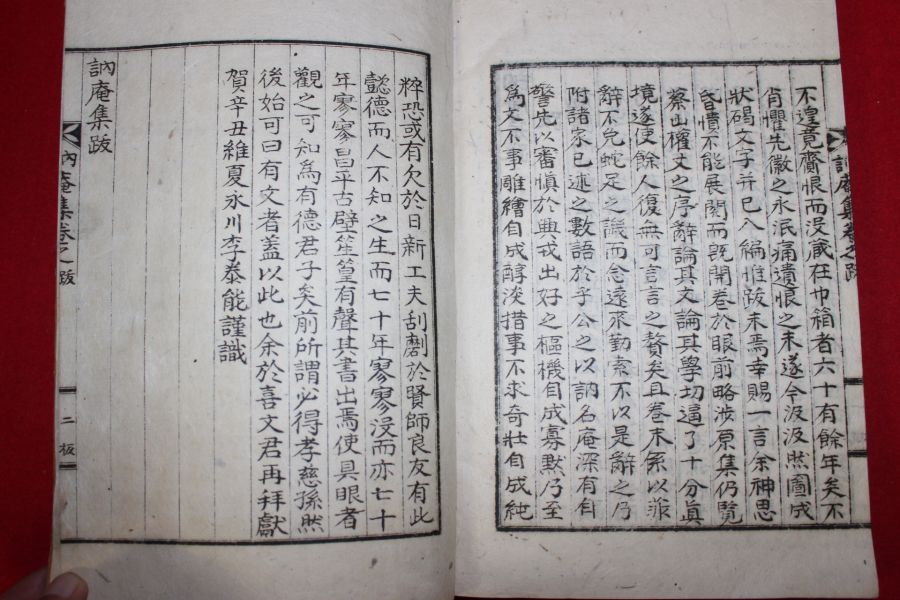 不遑竟齎恨而沒藏在巾箱者六十有餘年矣不
肖懼先徽之永泯痛遺恨之未遂今汲汲然圖成
狀碣文字并已入編惟跋未焉幸賜一言余神思
昏憒不能展閱而旣開卷於眼前略涉原集仍覽
蔡山權丈之序辭論其文論其學功逼了十分眞
境遂使餘人復無可言言之贅矣且卷末係以菲
辭不免蛇足之譏而念遠來勤索不以是辭之乃
附諸家已述之數語於乎公之以訥名庵深有自
警先以審愼於典戎出好之樞機自成寡默乃至
爲文不事雕繪自成醇淡措事不求奇壯自成純
訥庵集卷之 跋
粹恐或有欠於日新工夫刮劘於賢師良友有此
懿德而人不知之生而七十年寥寥沒而亦七十
年寥寥昌平古壁笙篁有聲其書出焉使具眼者
觀之可知爲有德君子矣前所謂必得孝慈孫然
後始可曰有文者蓋以此也余於喜文君再拜獻
賀辛丑維夏永川李泰能謹識
訥庵集跋
訥庵集卷之 跋
二 板